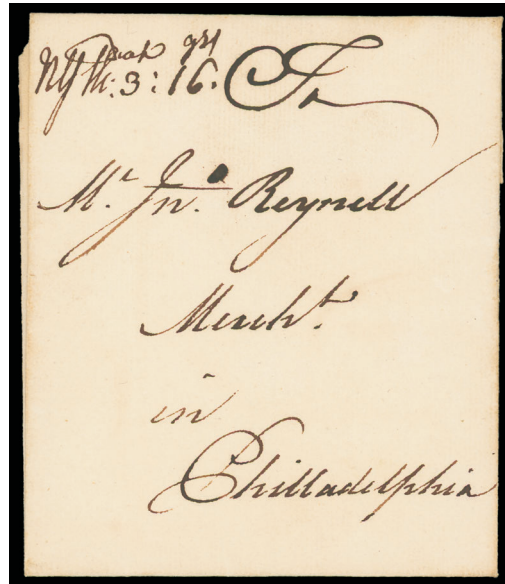 dwt gr
NY M: 3: 16. To
Mr. Jno. Reynell
Mercht.
in
Philladelphia